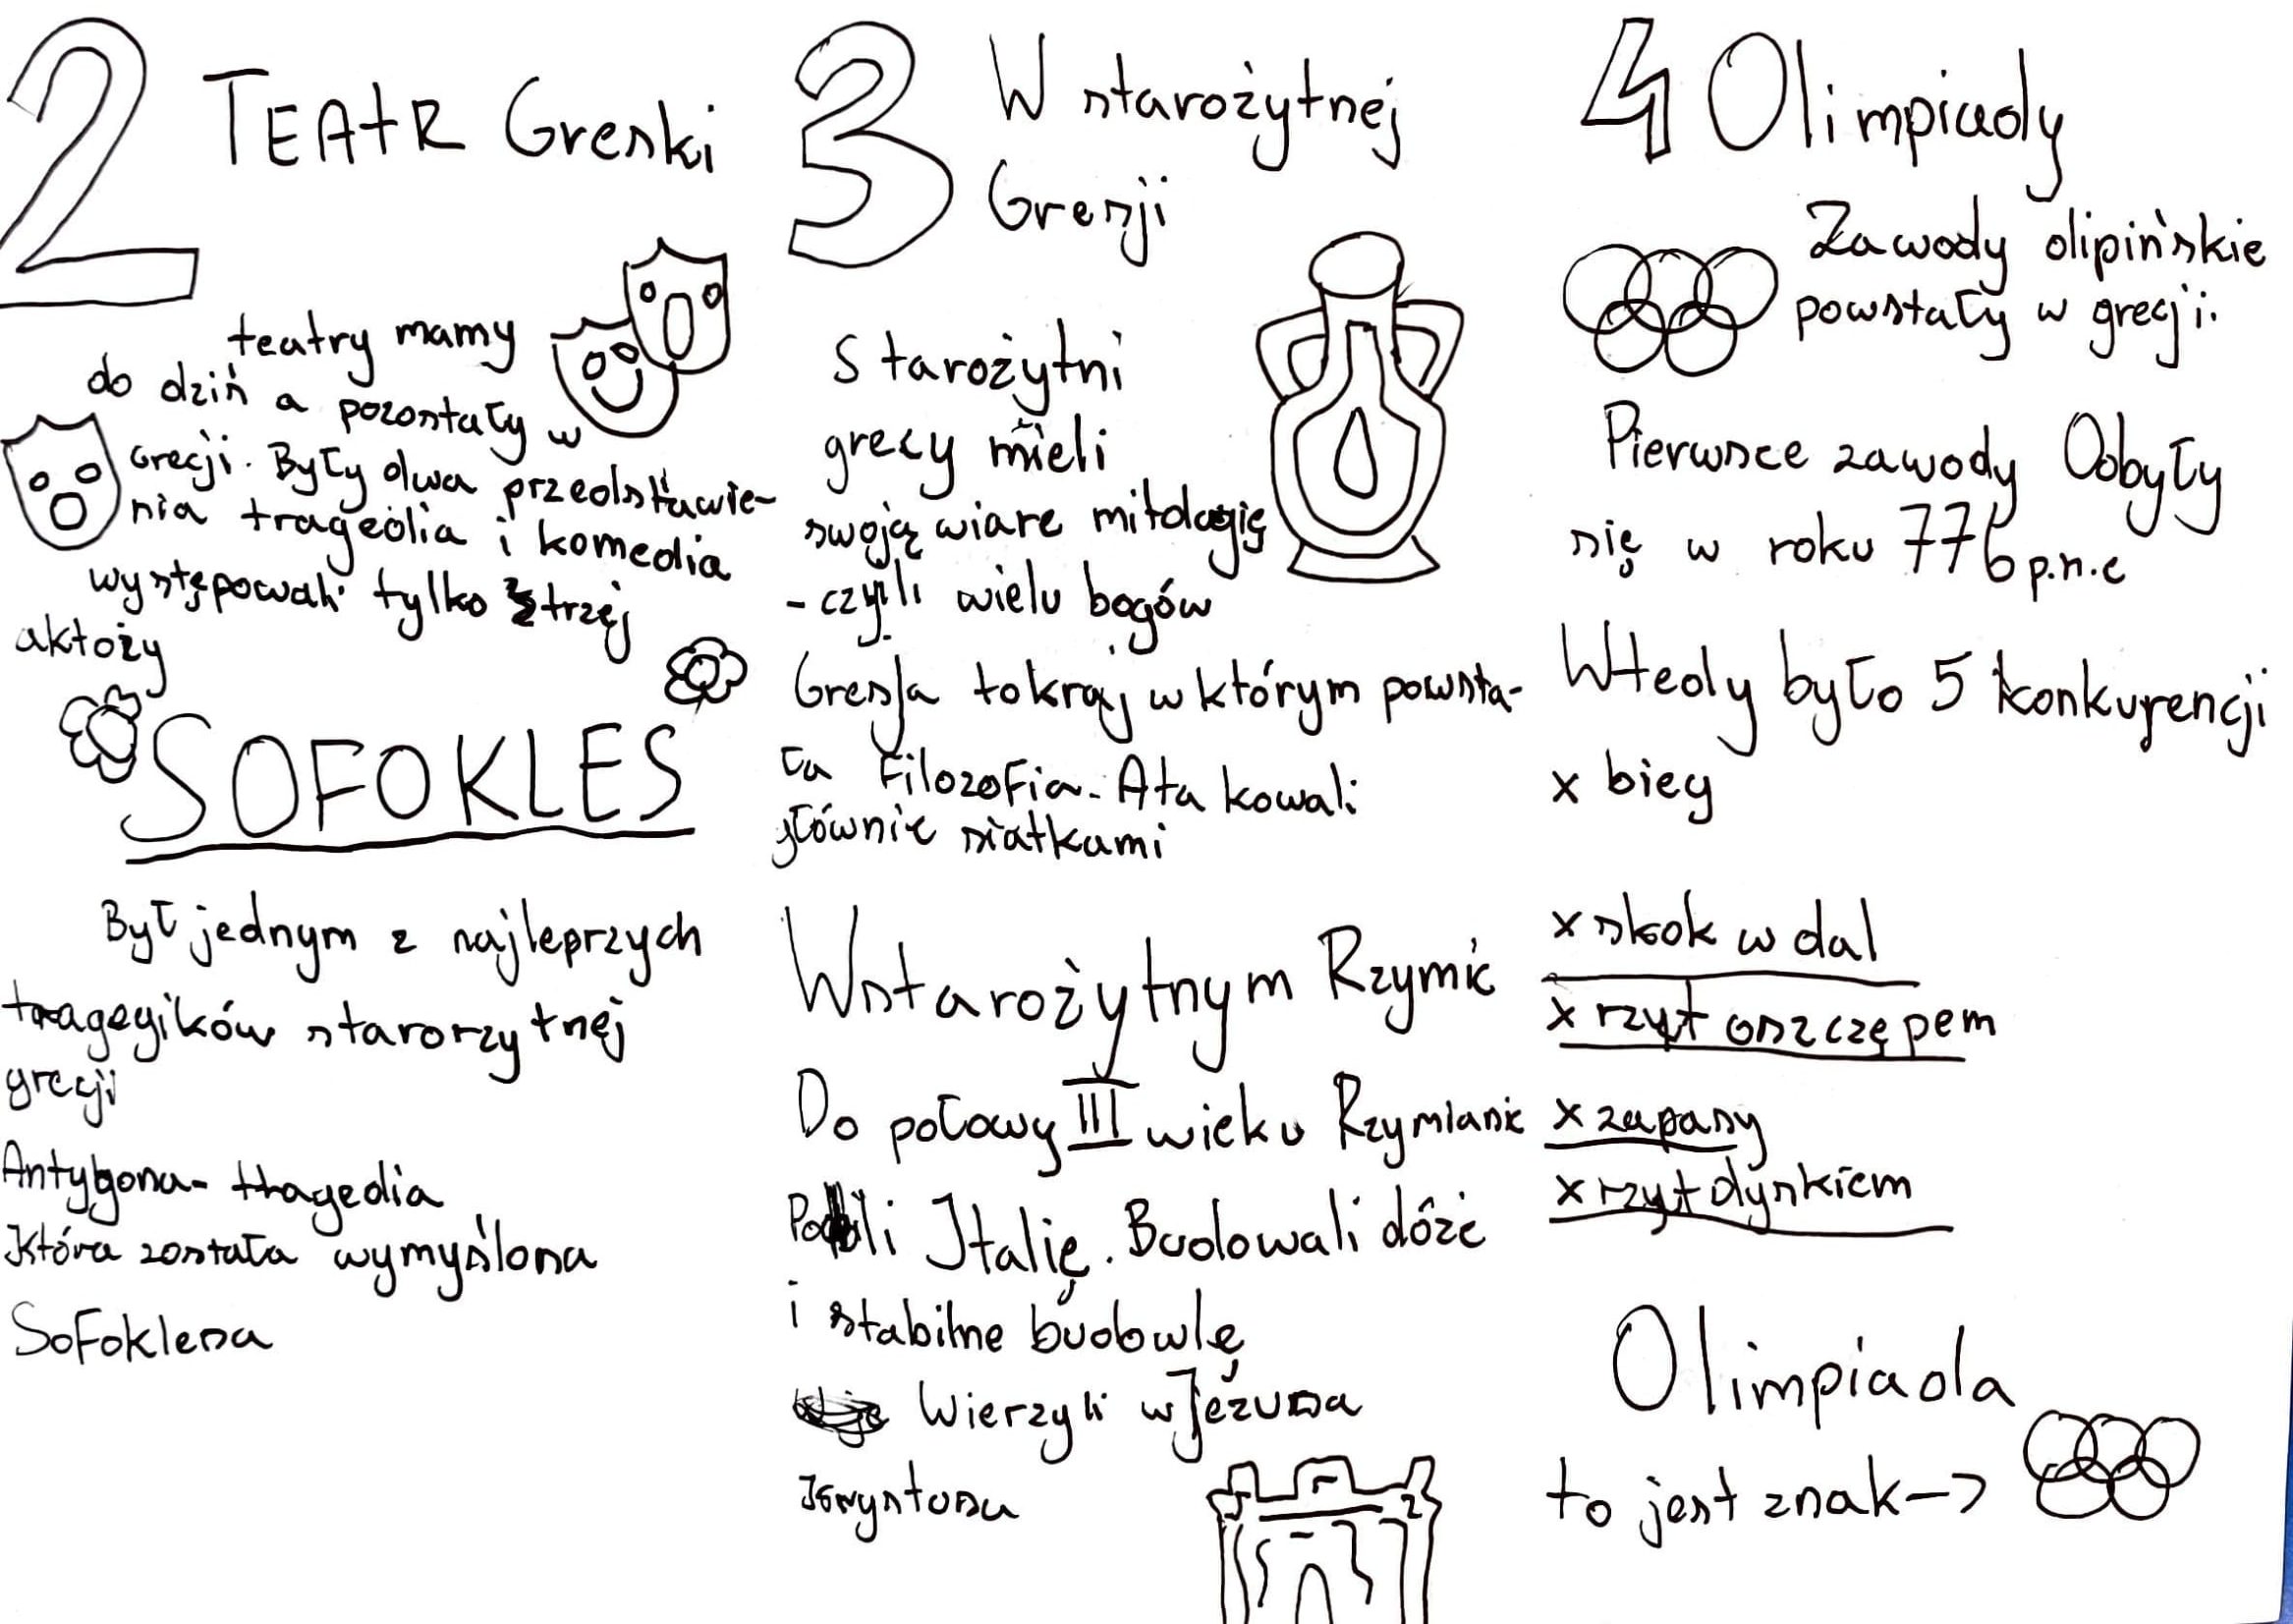 2 TEAtR Greski
teatry mamy
do dziś a pozostały w
Grecji. Były dwa przedstawie-
nia tragedia i komedia
występowali tylko trzej
aktoży
SOFOKLES
Był jednym z najleprzych
tragegików starorzytnej
grecji
Antybona- tragedia
Która została wymyślona
SoFoklesa
3 W starożytnej
Gresji
Starożytni
grecy mieli
swoją wiare mitologię
- czyli wielu bogów
Gresja to kraj w którym powsta-
ła Filozofia. Atakowali
głównie siatkami
W starożytnym Rzymie
Do połowy III wieku Rzymianie
li Italię. Budowali dóże
i stabilne budowlę
Wierzyli w Jezusa
krystusa
4 Olimpiady
Zawody olipińskie
powstały w grecji.
Pierwsce zawody Odbyły
się w roku 776 p.n.e
Wtedy było 5 konkurencji
x bieg
x skok w dal
x rzyt oszczępem
x zapasy
x rzyt dyskiem
Olimpiada
to jest znak->